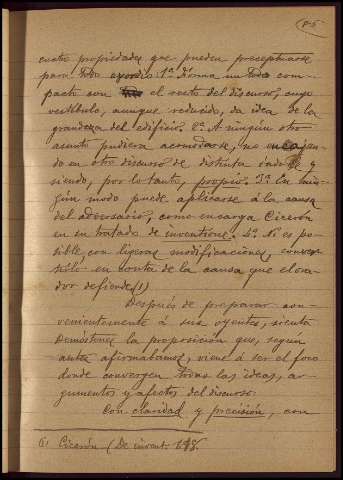 (95
cuatro propiedades que pueden preceptuarse
para todo exordio: 1ª. Forma un todo com-
pacto con el resto del discurso, cuyo
vestíbulo, aunque reducido, da idea de la
grandeza del edificio. 2ª. A ningún otro
asunto pudiera acomodarse, no encajan-
do en otro discurso de distinta índole y
siendo, por lo tanto, propio. 3ª. En nin-
gún modo puede aplicarse á la causa
del adversario, como encarga Cicerón
en su tratado de inventione. 4ª. No es po-
sible, con ligeras modificaciones, conver-
tirlo en contra de la causa que el ora-
dor defiende (1)
Después de preparar con-
venientemente á sus oyentes, sienta
Demóstenes la proposición que, según
antes afirmábamos, viene á ser el foco
donde convergen todas las ideas, ar-
gumentos y afectos del discurso.
Con claridad y precisión, con
Cicerón (De invent.